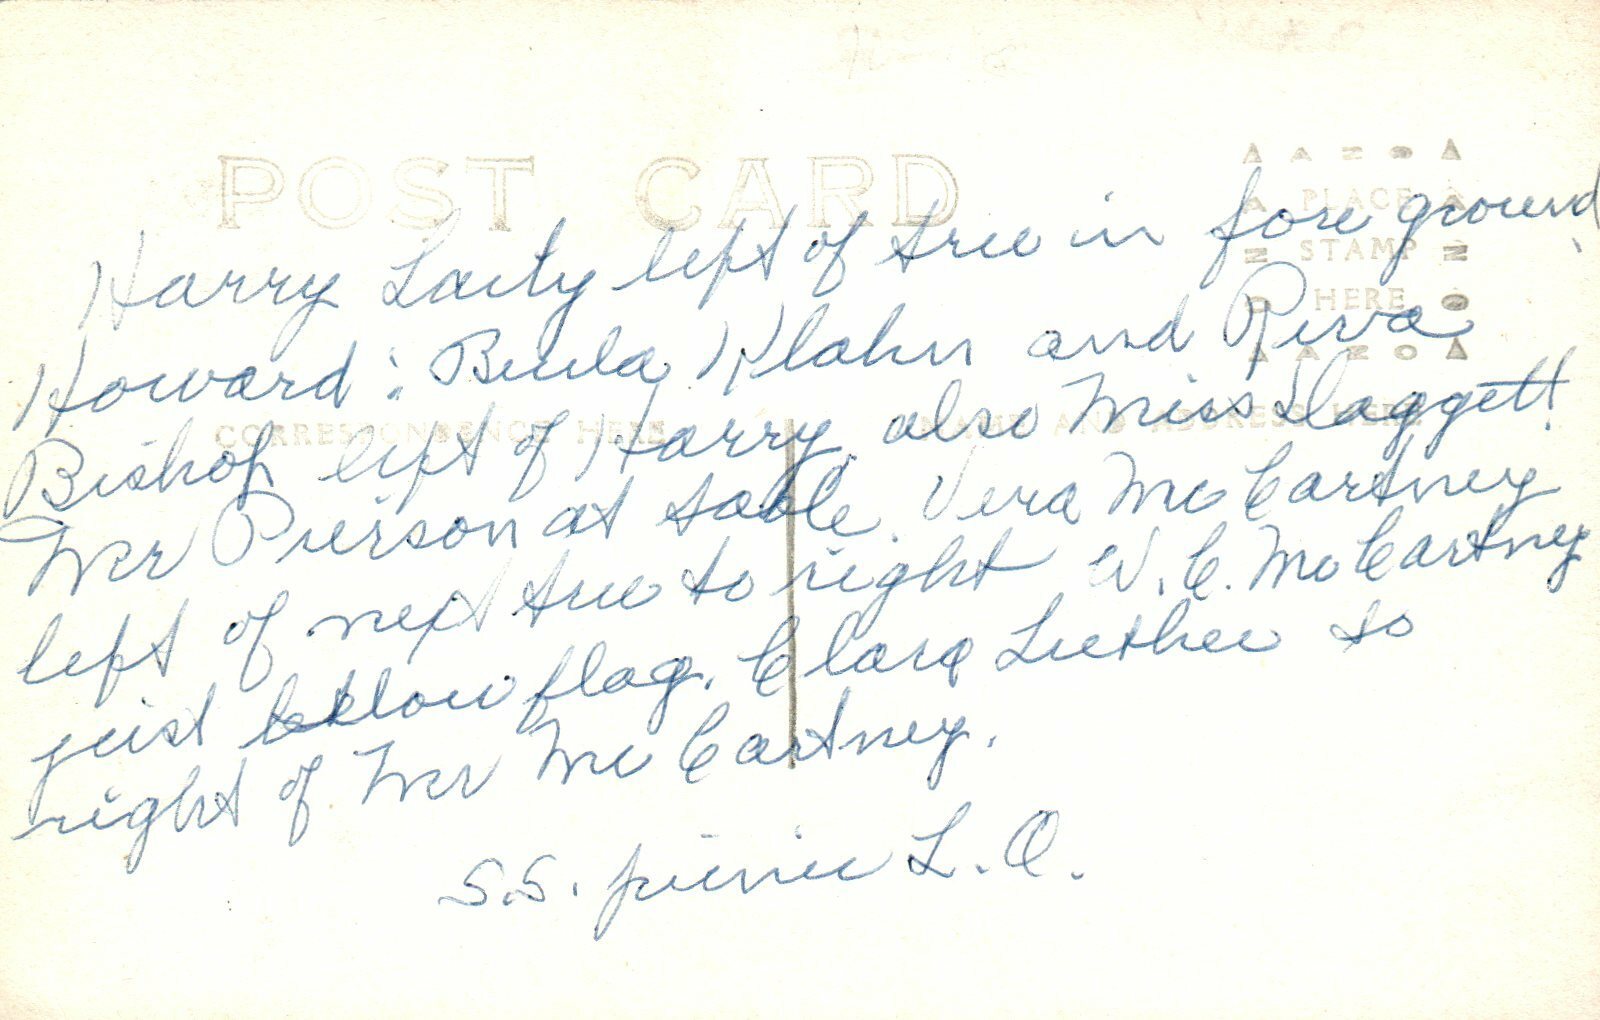 POST CARD
AZO
PLACE
STAMP
HERE
AZO
CORRESPONDENCE HERE
NAME AND ADDRESS HERE
Harry Laity left of tree in fore ground
Howard: Beula Klahn and Reva
Bishop left of Harry, also Miss Daggett
Mr Pierson at table. Vera McCartney
left of next tree to right W. C. McCartney
just below flag. Clara Luther to
right of Mr McCartney.
S.S. picnic L.A.